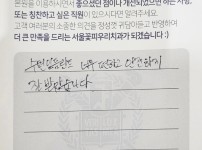 본원을 이용하시면서 좋으셨던 점이나 개선되었으면 하는 사항,
또는 칭찬하고 싶은 직원이 있으시다면 알려주세요.
고객 여러분의 소중한 의견을 정성껏 귀담아듣고 반영하여
더 큰 만족을 드리는 서울꽃피우리치과가 되겠습니다 :)
너무 친절하고 안전하게
잘 받았습니다